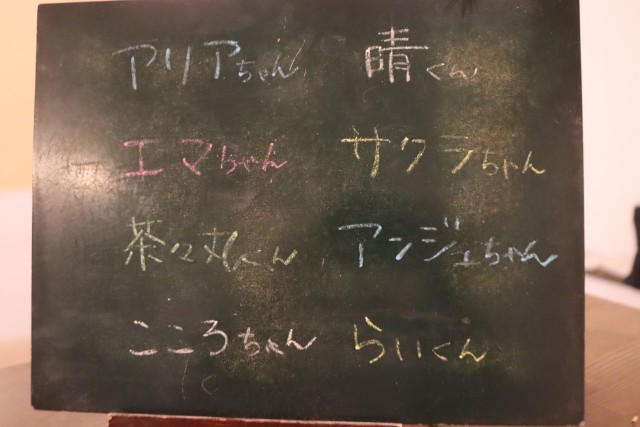 アリアちゃん 晴くん
エマちゃん サクラちゃん
茶々丸くん アンジュちゃん
こころちゃん らいくん